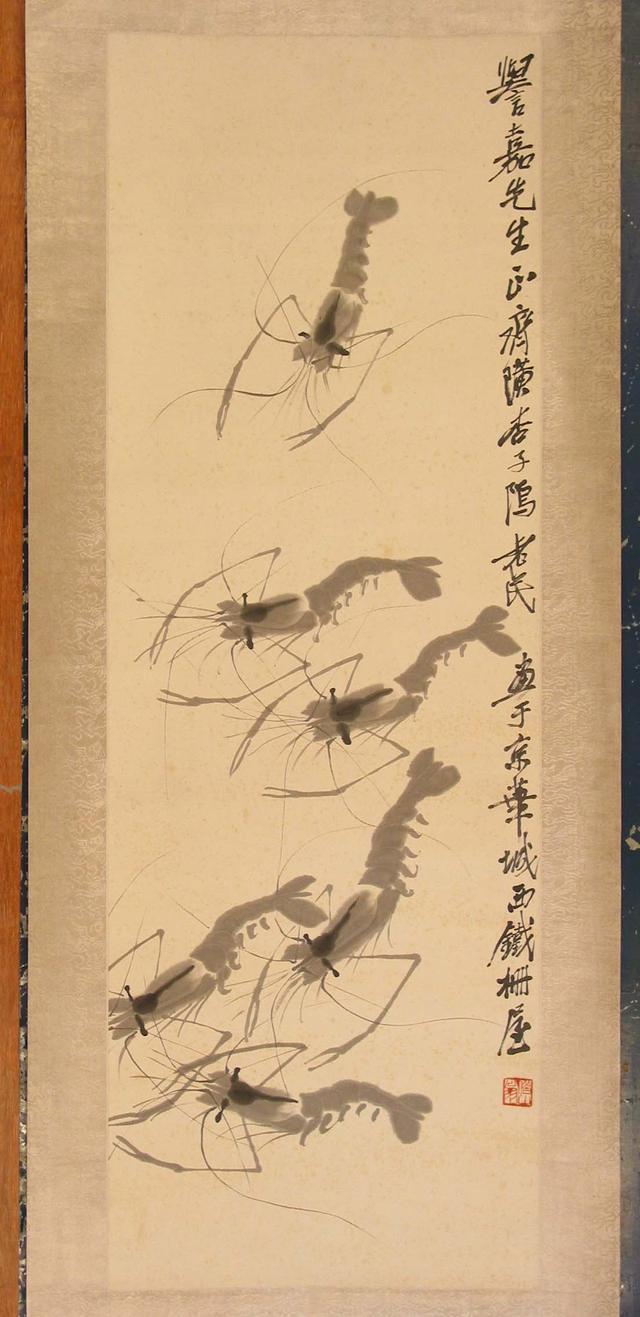 譽嘉先生正齊璜杏子隖老民 畫于京華城西鐵柵屋